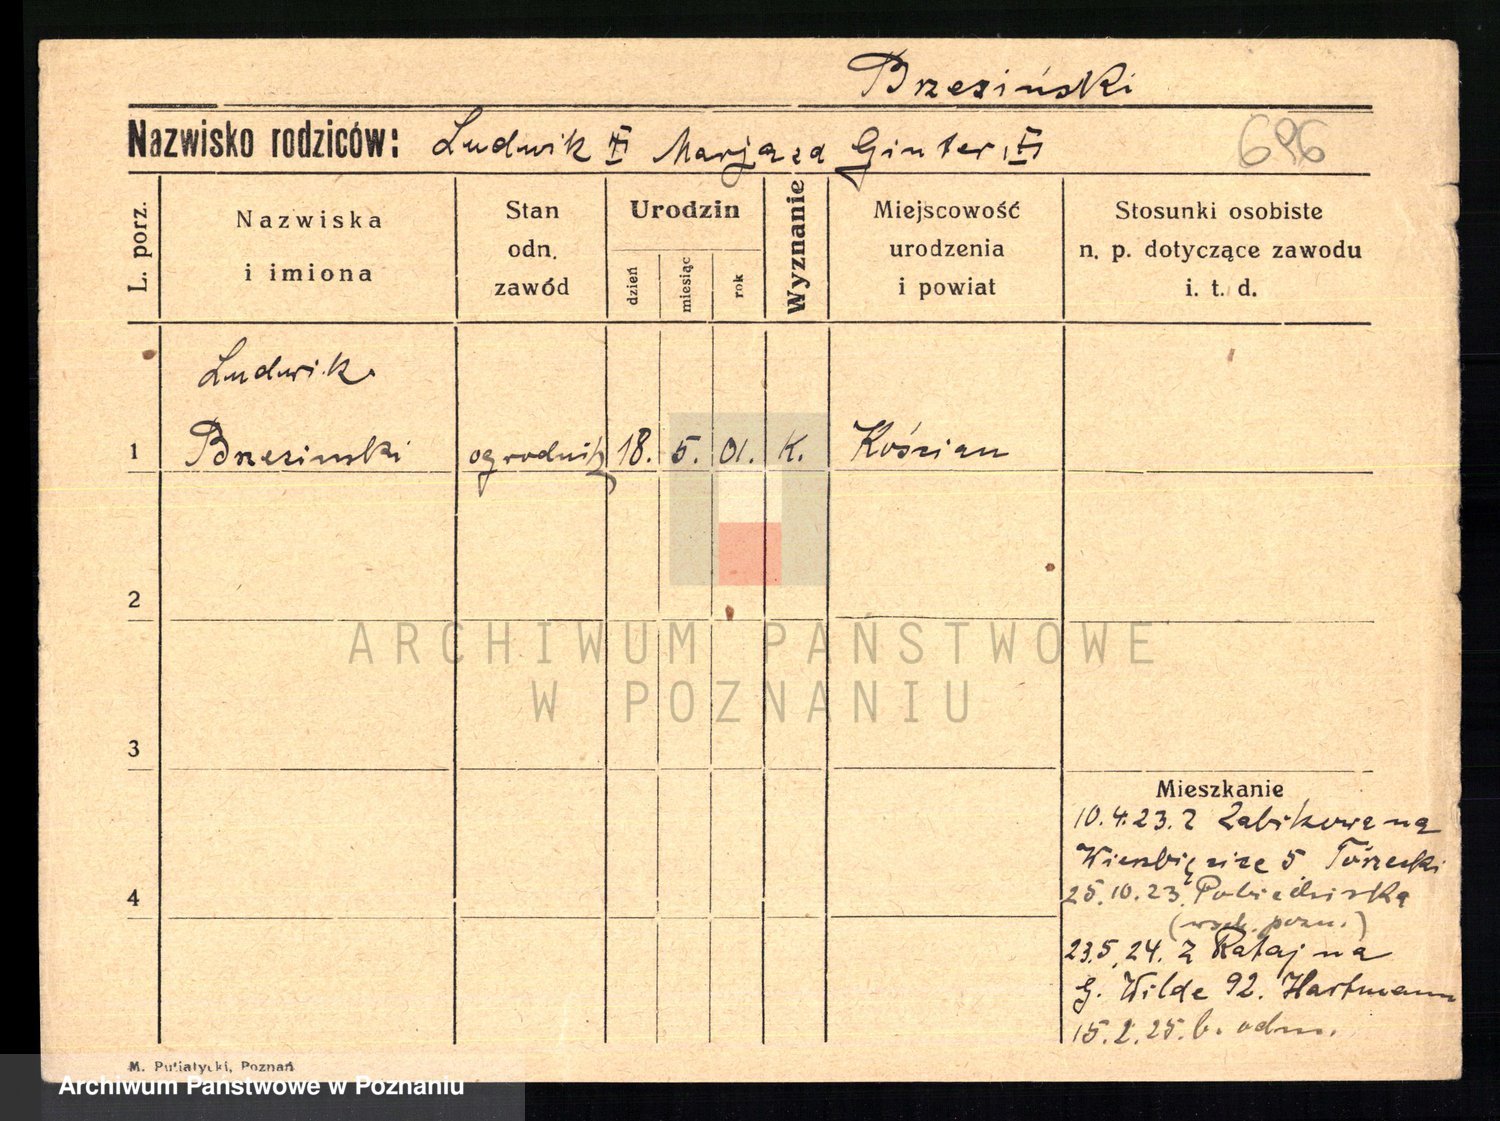 Brzeziński
Nazwisko rodziców: Ludwik Marja zd Ginter
696
L. porz.
Nazwiska
i imiona
Stan
odn.
zawód
Urodzin
dzień
miesiąc
rok
Wyznanie
Miejscowość
urodzenia
i powiat
Stosunki osobiste
n. p. dotyczące zawodu
i. t. d.
Ludwik
1 Brzezinski ogrodnik 18. 5. 01. K. Kościan
2
3
4
Mieszkanie
10.4.23. z Żabikowa na
Wierzbięcice 5
25.10.23. Pobiedziska
(wsch. pozn.)
23.5.24. z Rataj na
G. Wilde 92. Hartmann
15.2.25. b. odm.
M. Putiatycki, Poznań
ARCHIWUM PAŃSTWOWE
W POZNANIU
Archiwum Państwowe w Poznaniu